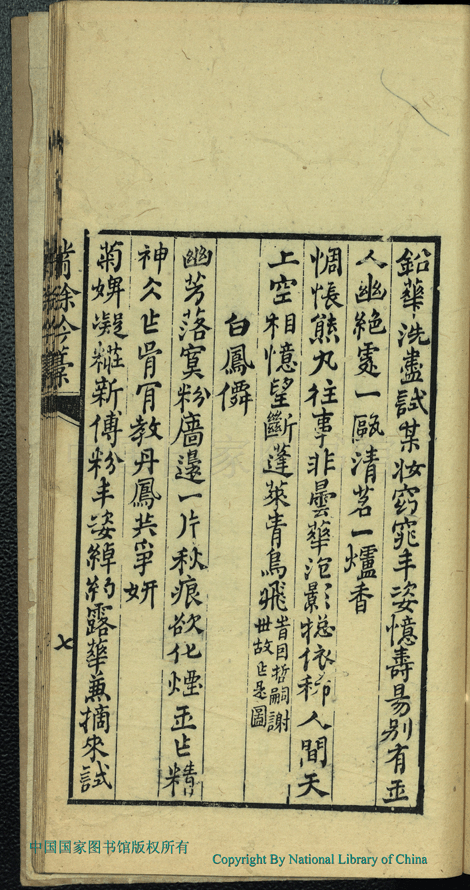 鉛華洗盡試某妝窈窕丰姿憶壽昜別有玉
人幽絕處一甌清茗一爐香
惆悵熊丸往事非曇華泡影總依稀人間天
上空相憶望斷蓬萊青鳥飛昔因哲嗣謝
世故作是圖
白鳳僊
幽芳落寞粉廧邊一片秋痕欲化煙玉作精
神久作骨肎教丹鳳共爭妍
菊婢凝糚新傅粉丰姿綽約露華蒹摘來試
餘吟藁
七
中国国家图书馆版权所有
Copyright By National Library of China